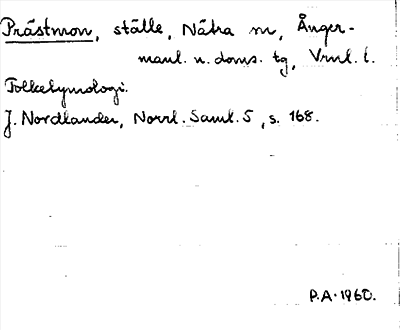 Prästmon, ställe, Nätra sn, Ånger-
manl. n. doms. tg, Vrnl. l.
Folketymologi.
J. Nordlander, Norrl. Saml. 5, s. 168.
P.A. 1960.